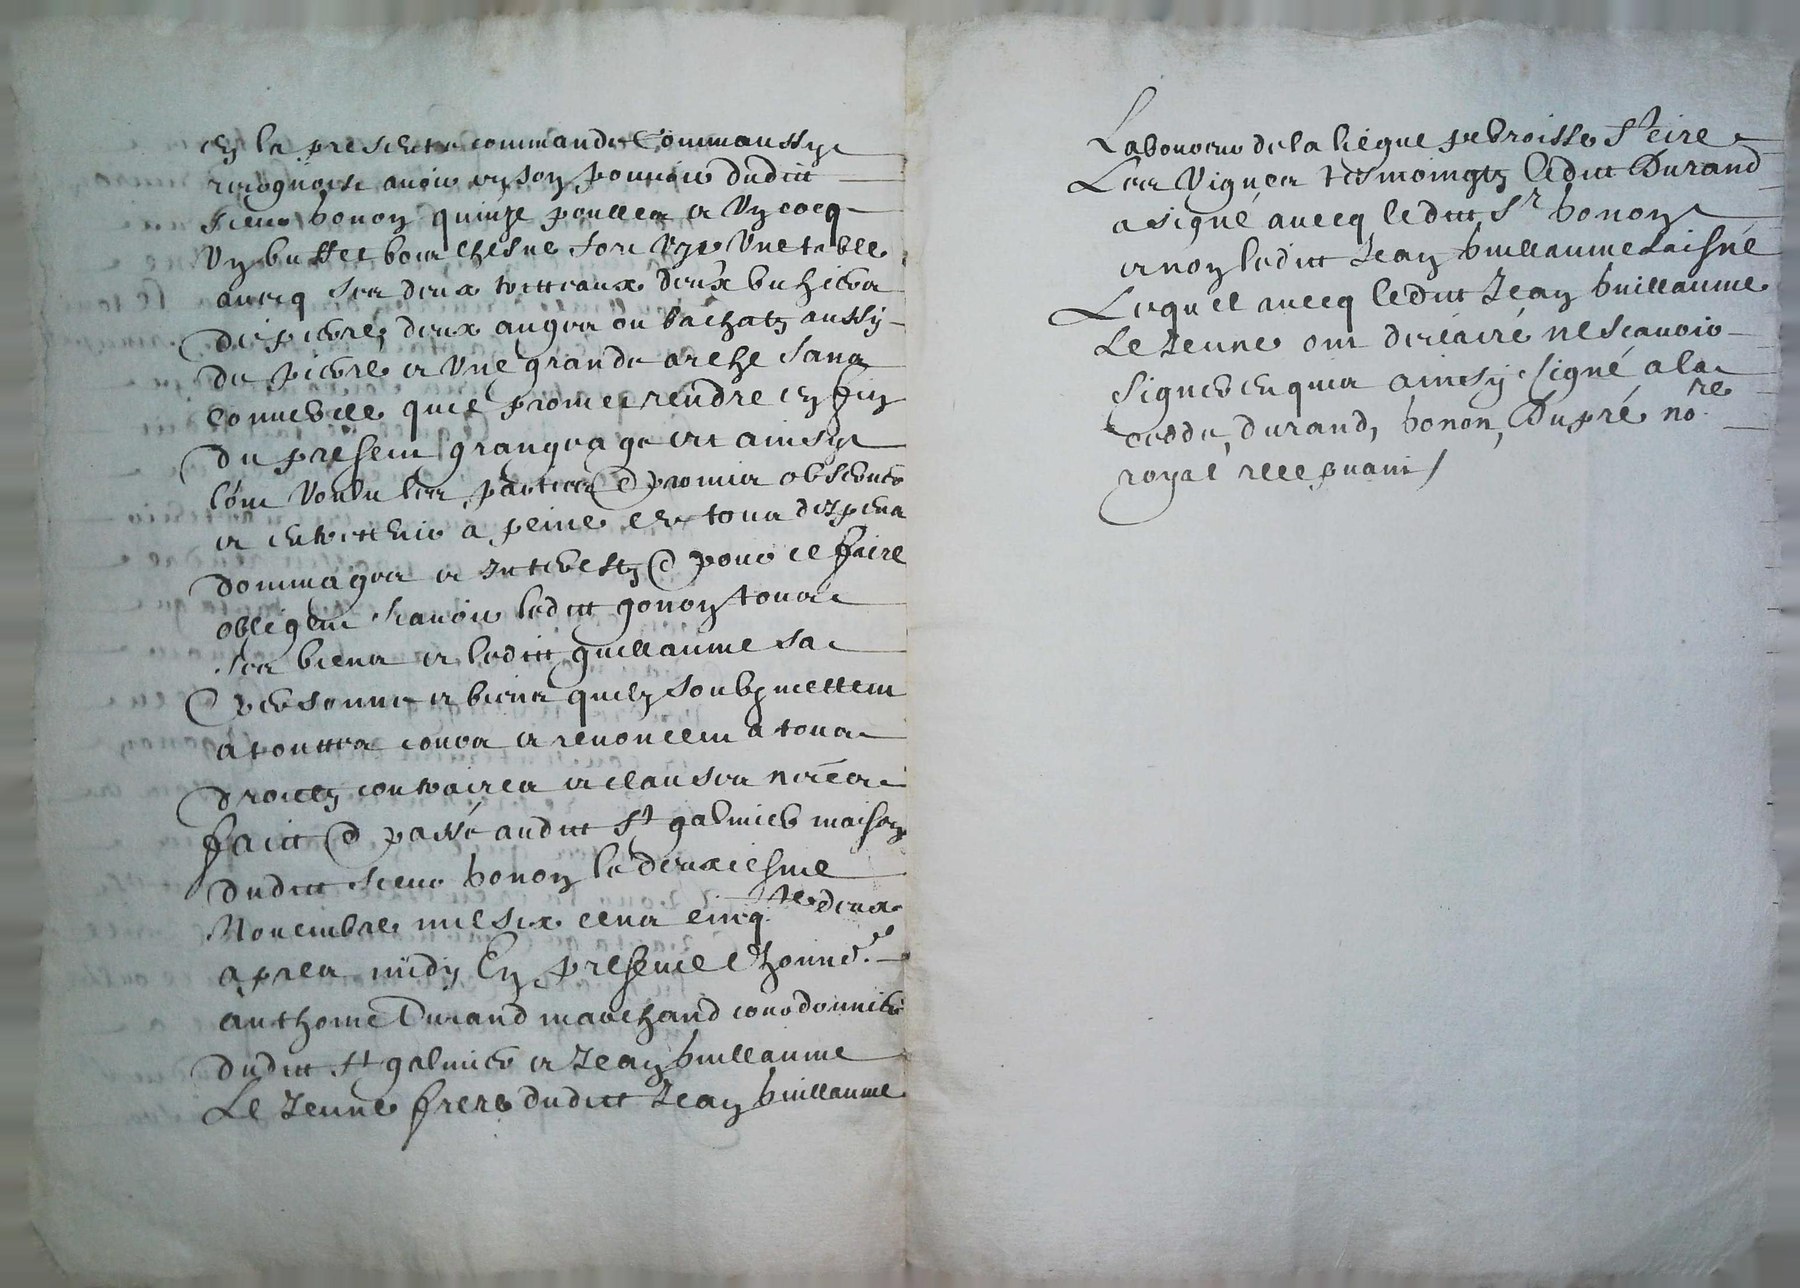 en la presente commande Comm aussy
recognoist avoir en son pouvoir dudict
sieur bonon quinze poulles et Un cocq
Un buffet bois chesne fort Uzé Une table
avecq ses deux tretteaux deux
de pierre, deux auges ou bachatz aussy
de pierre et Une grande arche sans
couvercle quil promet rendre en fin
du present grangeage Car ainsy
lont Voulu les parties & promis observer
et entretenir a peine de tous despens
dommages et Interestz & pour ce faire
obligent scavoir ledict gonon tous
ses biens et ledict guillaume sa
personne et biens quilz soubzmettent
a touttes cours et renoncent a tous
droictz contraires et clauses necres
faict & passé audict St galmier maison
dudict sieur bonon le deuxiesme
Novembre mil six cens cinqte deux
apres midy En presence Dhonne.
anthoine Durand marchand courdonnier
dudict St galmier et Jean guillaume
Le Jeune frere dudict Jean guillaume
Laboureur de la paroisse St
Les Vignes tesmoingtz ledict Durand
a signé avecq ledict Sr bonon
et non ledict Jean guillaume Laisné
Lequel avecq ledict Jean guillaume
Le Jeune ont declairé ne scavoir
signer enquis ainsy signé a la
cedde, Durand, bonon, Dupré nore
royal recepvant /